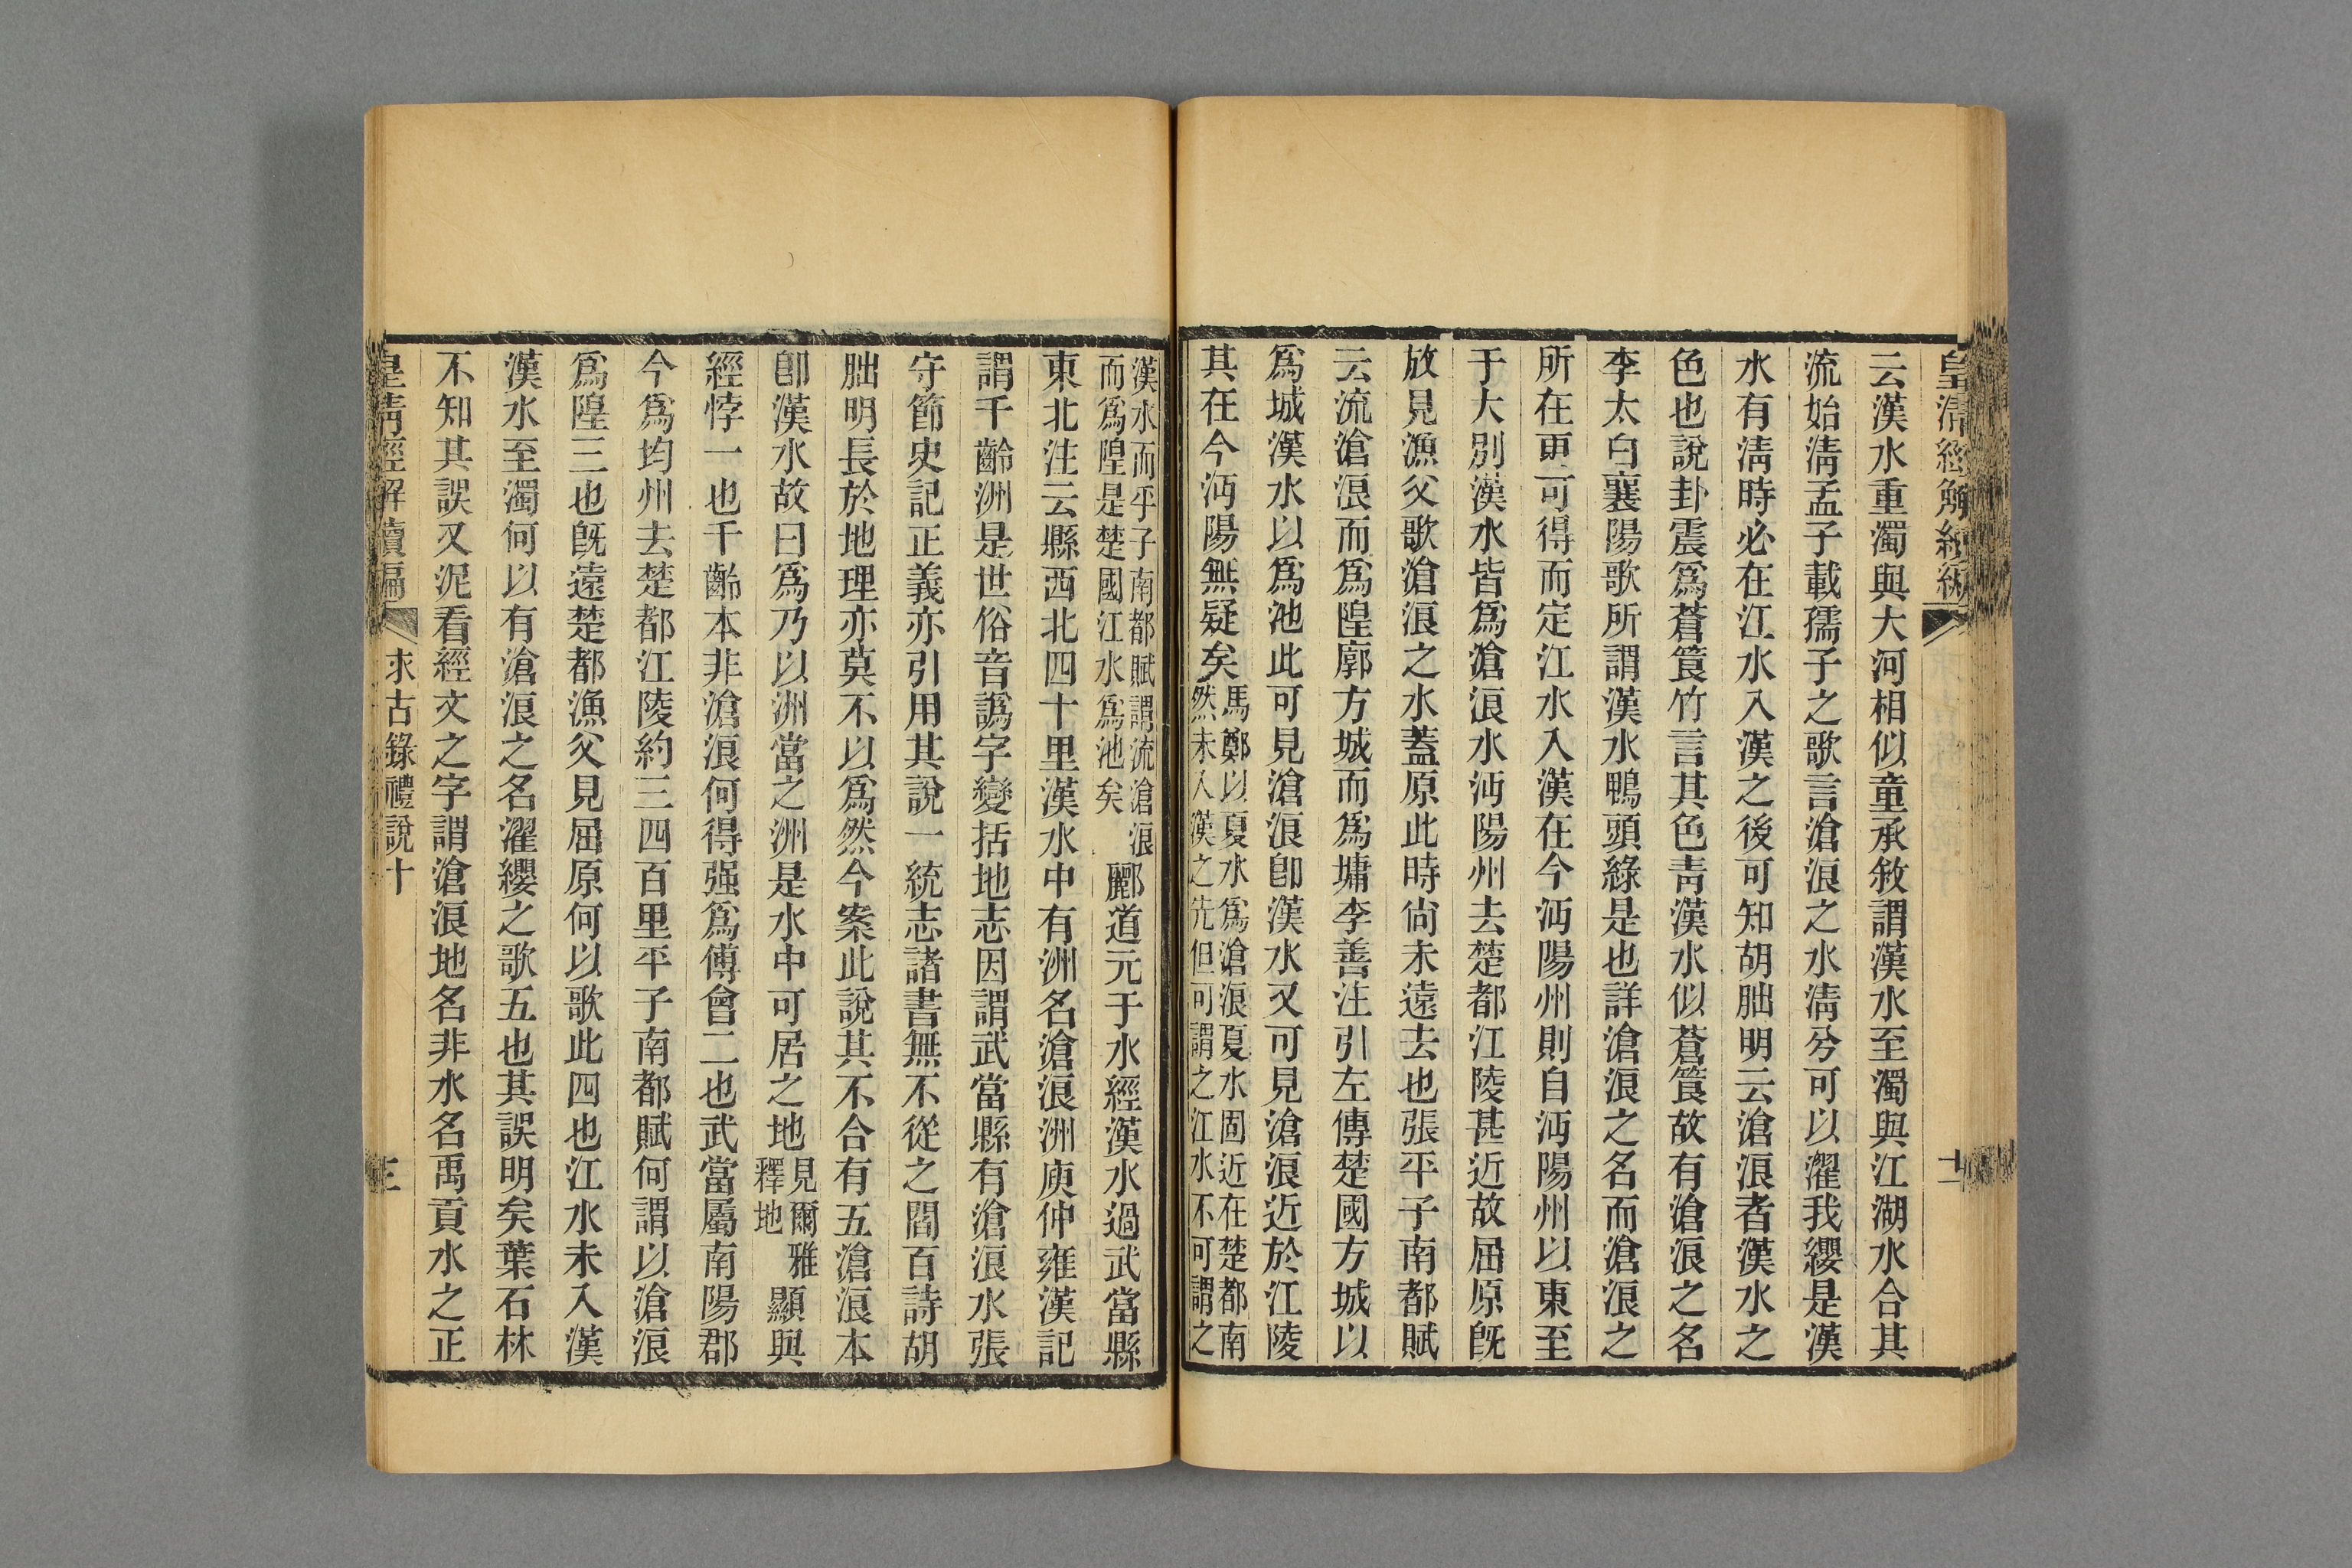 皇清經解續編
十二
云漢水重濁與大河相似童承敘謂漢水至濁與江湖水合其
流始淸孟子載孺子之歌言滄浪之水淸兮可以濯我纓是漢
水有淸時必在江水入漢之後可知胡朏明云滄浪者漢水之
色也說卦震爲蒼筤竹言其色靑漢水似蒼筤故有滄浪之名
李太白襄陽歌所謂漢水鴨頭綠是也詳滄浪之名而滄浪之
所在更可得而定江水入漢在今沔陽州則自沔陽州以東至
于大別漢水皆爲滄浪水沔陽州去楚都江陵甚近故屈原旣
放見漁父歌滄浪之水蓋原此時尙未遠去也張平子南都賦
云流滄浪而爲隍廓方城而爲墉李善注引左傳楚國方城以
爲城漢水以爲池此可見滄浪卽漢水又可見滄浪近於江陵
其在今沔陽無疑矣馬鄭以夏水爲滄浪夏水固近在楚都南
然未入漢之先但可謂之江水不可謂之
漢水而平子南都賦謂流滄浪
而爲隍是楚國江水爲池矣
酈道元于水經漢水過武當縣
東北注云縣西北四十里漢水中有洲名滄浪洲庾仲雍漢記
謂千齡洲是世俗音譌字變括地志因謂武當縣有滄浪水張
守節史記正義亦引用其說一統志諸書無不從之閻百詩胡
朏明長於地理亦莫不以爲然今案此說其不合有五滄浪本
卽漢水故曰爲乃以洲當之洲是水中可居之地見爾雅釋地顯與
經悖一也千齡本非滄浪何得强爲傅會二也武當屬南陽郡
今爲均州去楚都江陵約三四百里平子南都賦何謂以滄浪
爲隍三也旣遠楚都漁父見屈原何以歌此四也江水未入漢
漢水至濁何以有滄浪之名濯纓之歌五也其誤明矣葉石林
不知其誤又泥看經文之字謂滄浪地名非水名禹貢水之正
皇淸經解續編
求古錄禮說十
三